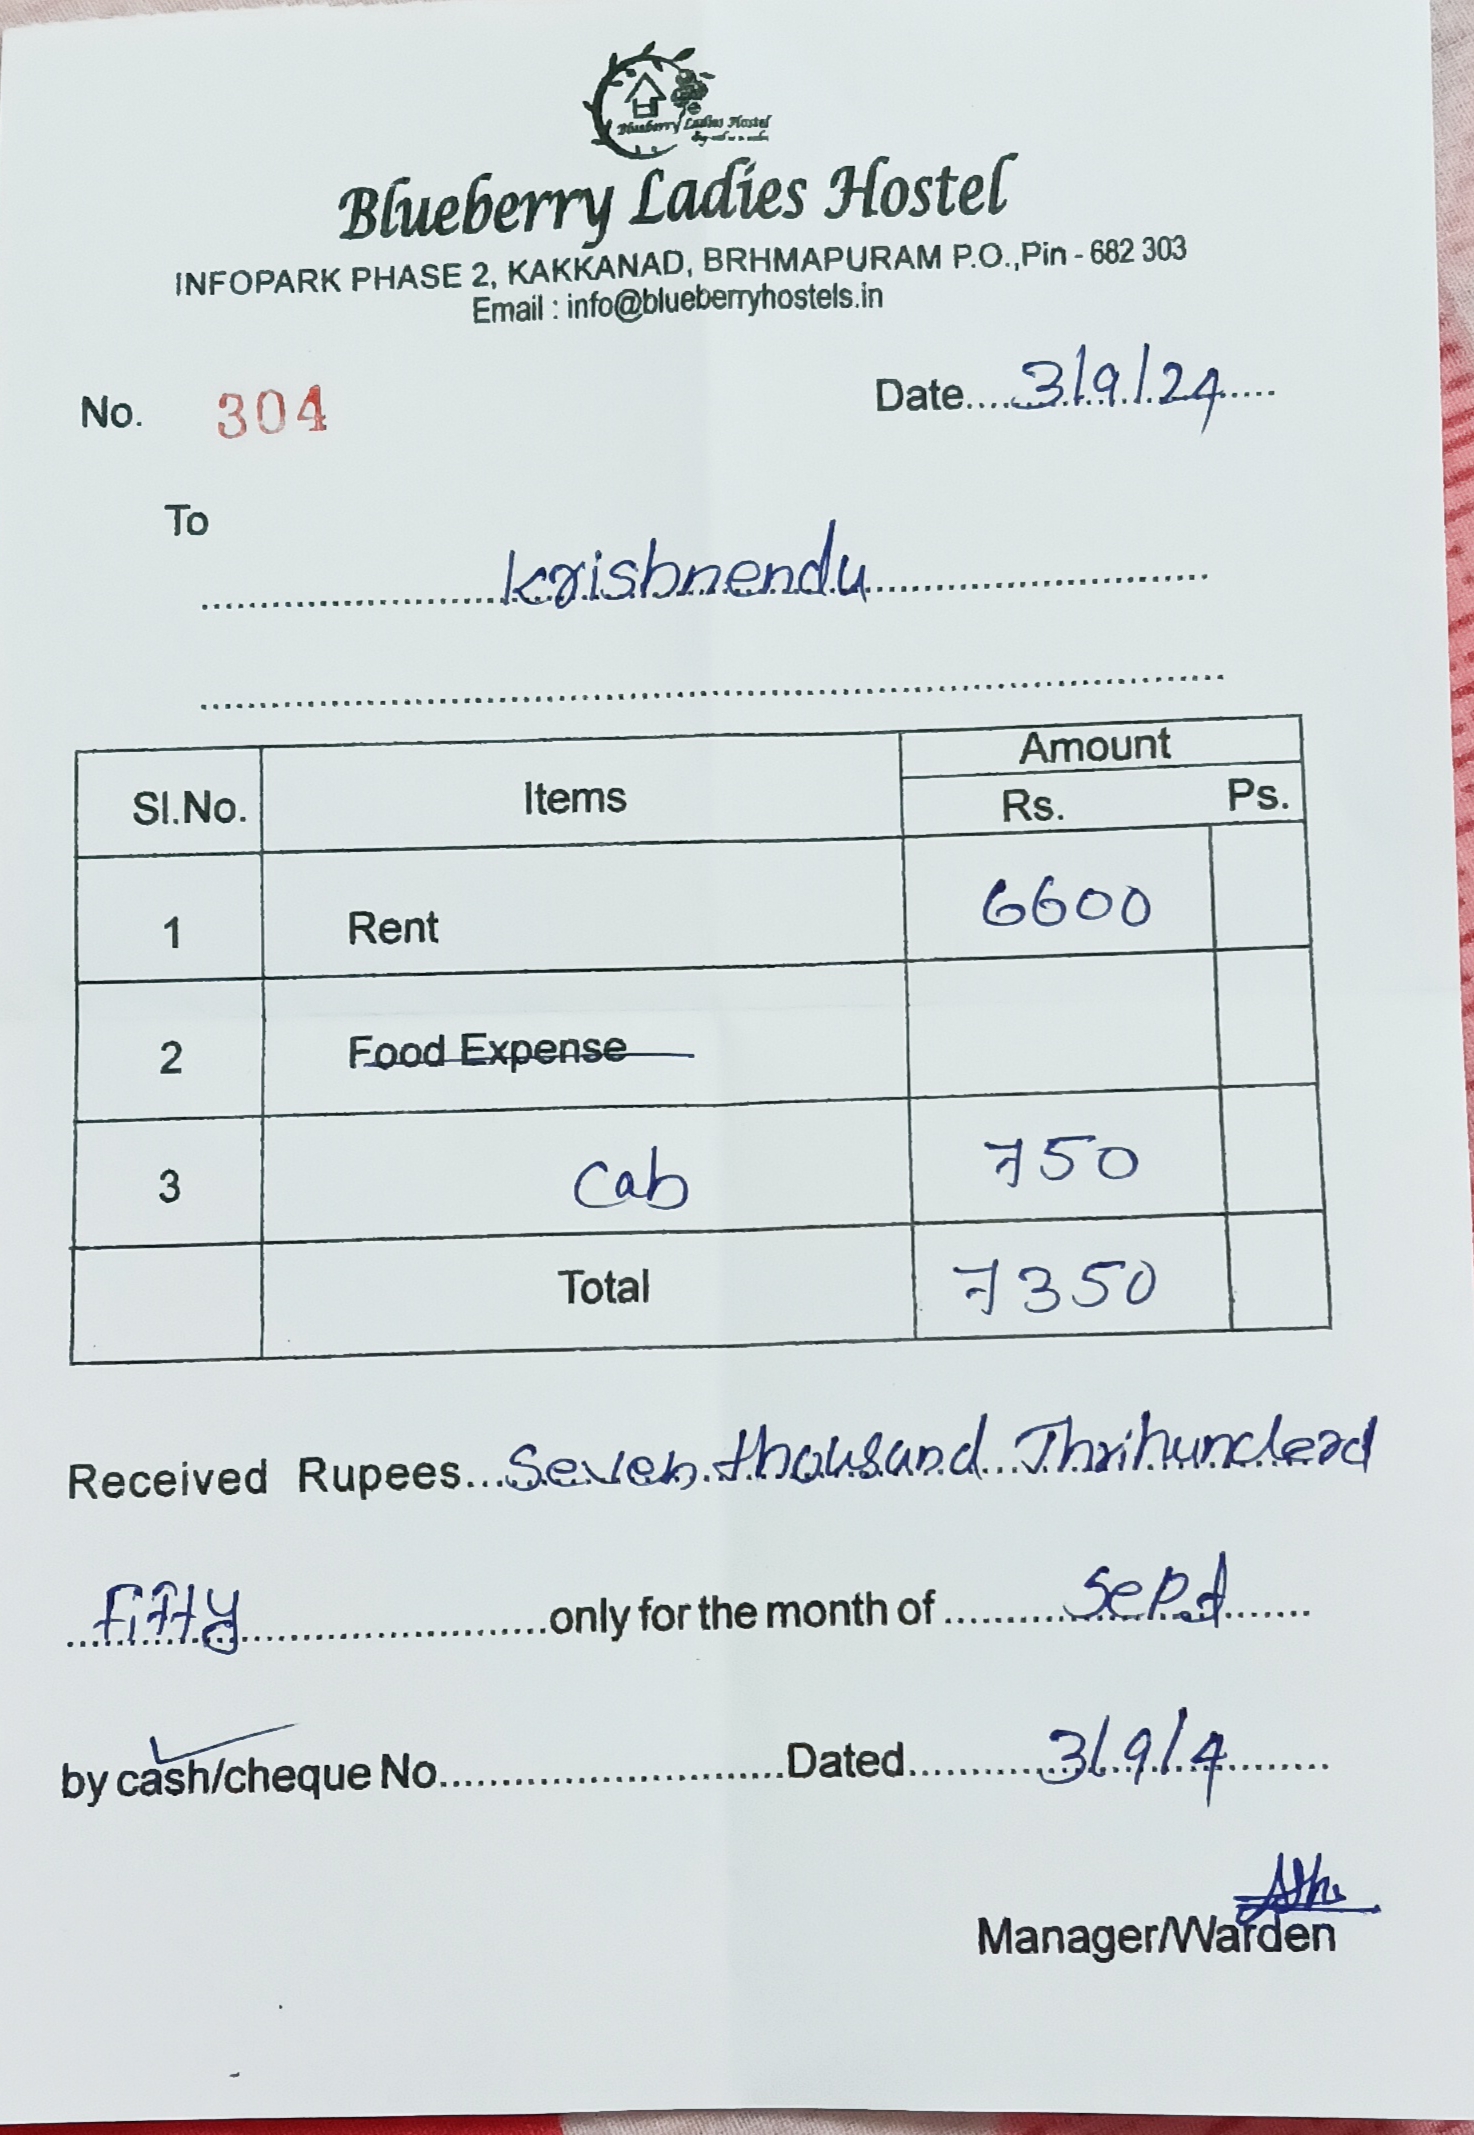 Blueberry Ladies Hostel
Blueberry Ladies Hostel
INFOPARK PHASE 2, KAKKANAD, BRHMAPURAM P.O.,Pin - 682 303
Email : info@blueberryhostels.in
No. 304 Date....3/9/24.....
To
krishnendu
Sl.No. Items Amount
Rs. Ps.
1 Rent 6600
2 Food Expense
3 Cab 750
Total 7350
Received Rupees...Seven thousand Thrihundead
fifty only for the month of sept
by cash/cheque No. Dated 3/9/4
Manager/Warden